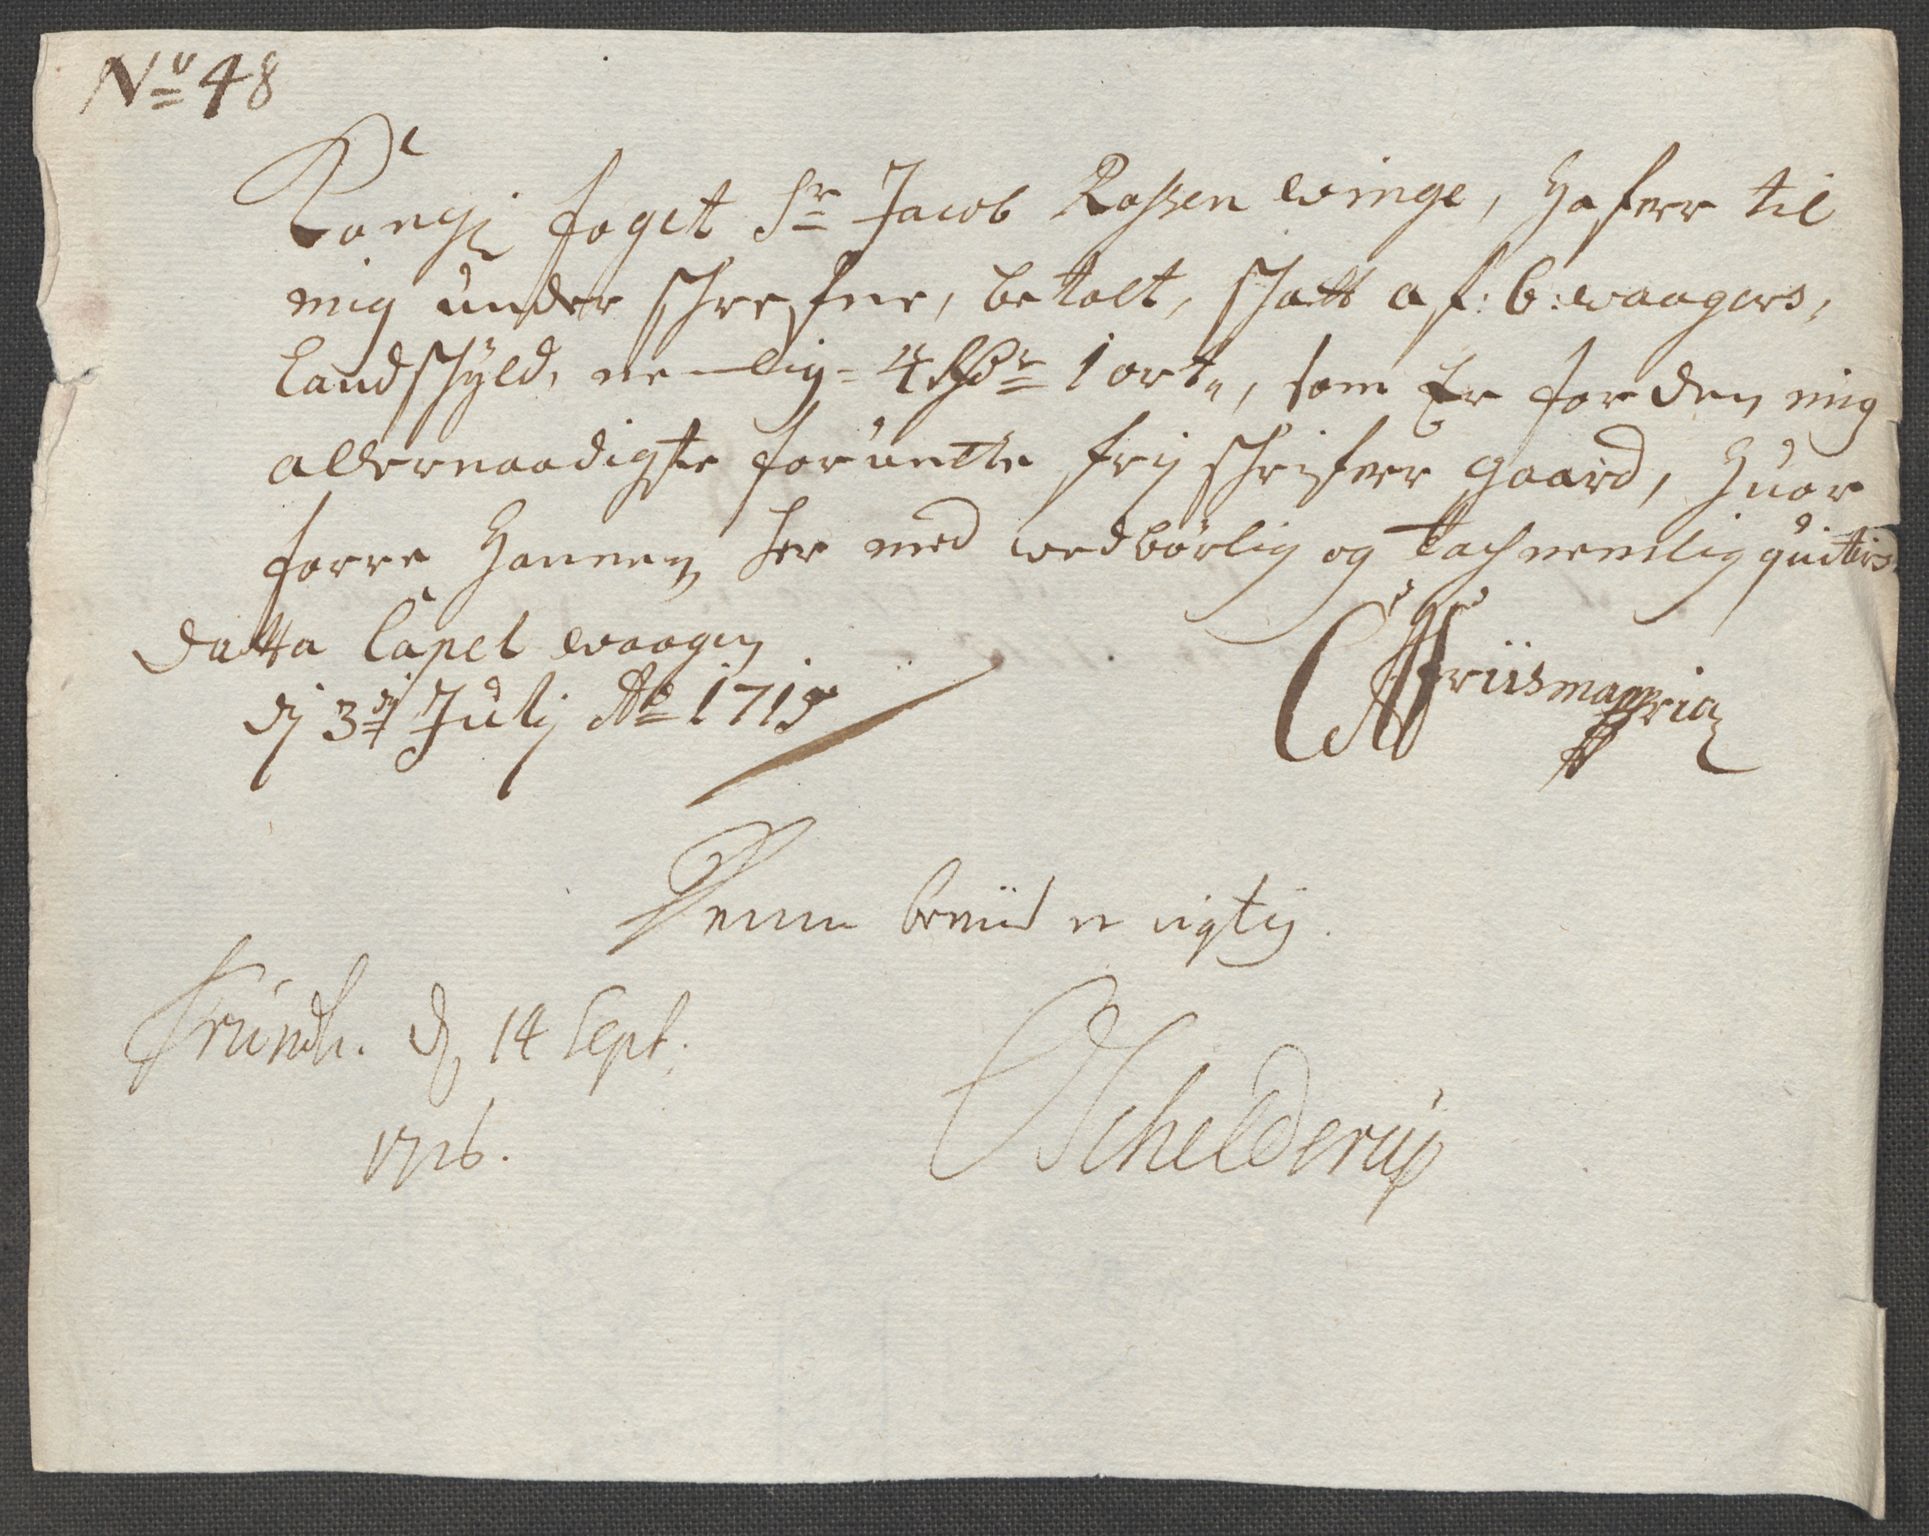 No 48
Kongl foget Sr Jacob Rossen winge, Hafuer til
mig under schrefne, betalt, schatt af: 6: waagers,
Landschyld, nemlig = 4 Rdr 1 ort, som Er for den mig
allernaadigste foruntte frij schrifuer gaard, Huor
forre Hannem her med wedbørlig og tachnemlig quiteris
datta Capel waagen
dj 3di Julij Ao 1715
Friisman
Denne breuid er rigtig.
Trundh. d. 14 Sept.
1716.
Schelderup